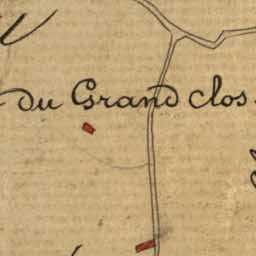 du Grand clos